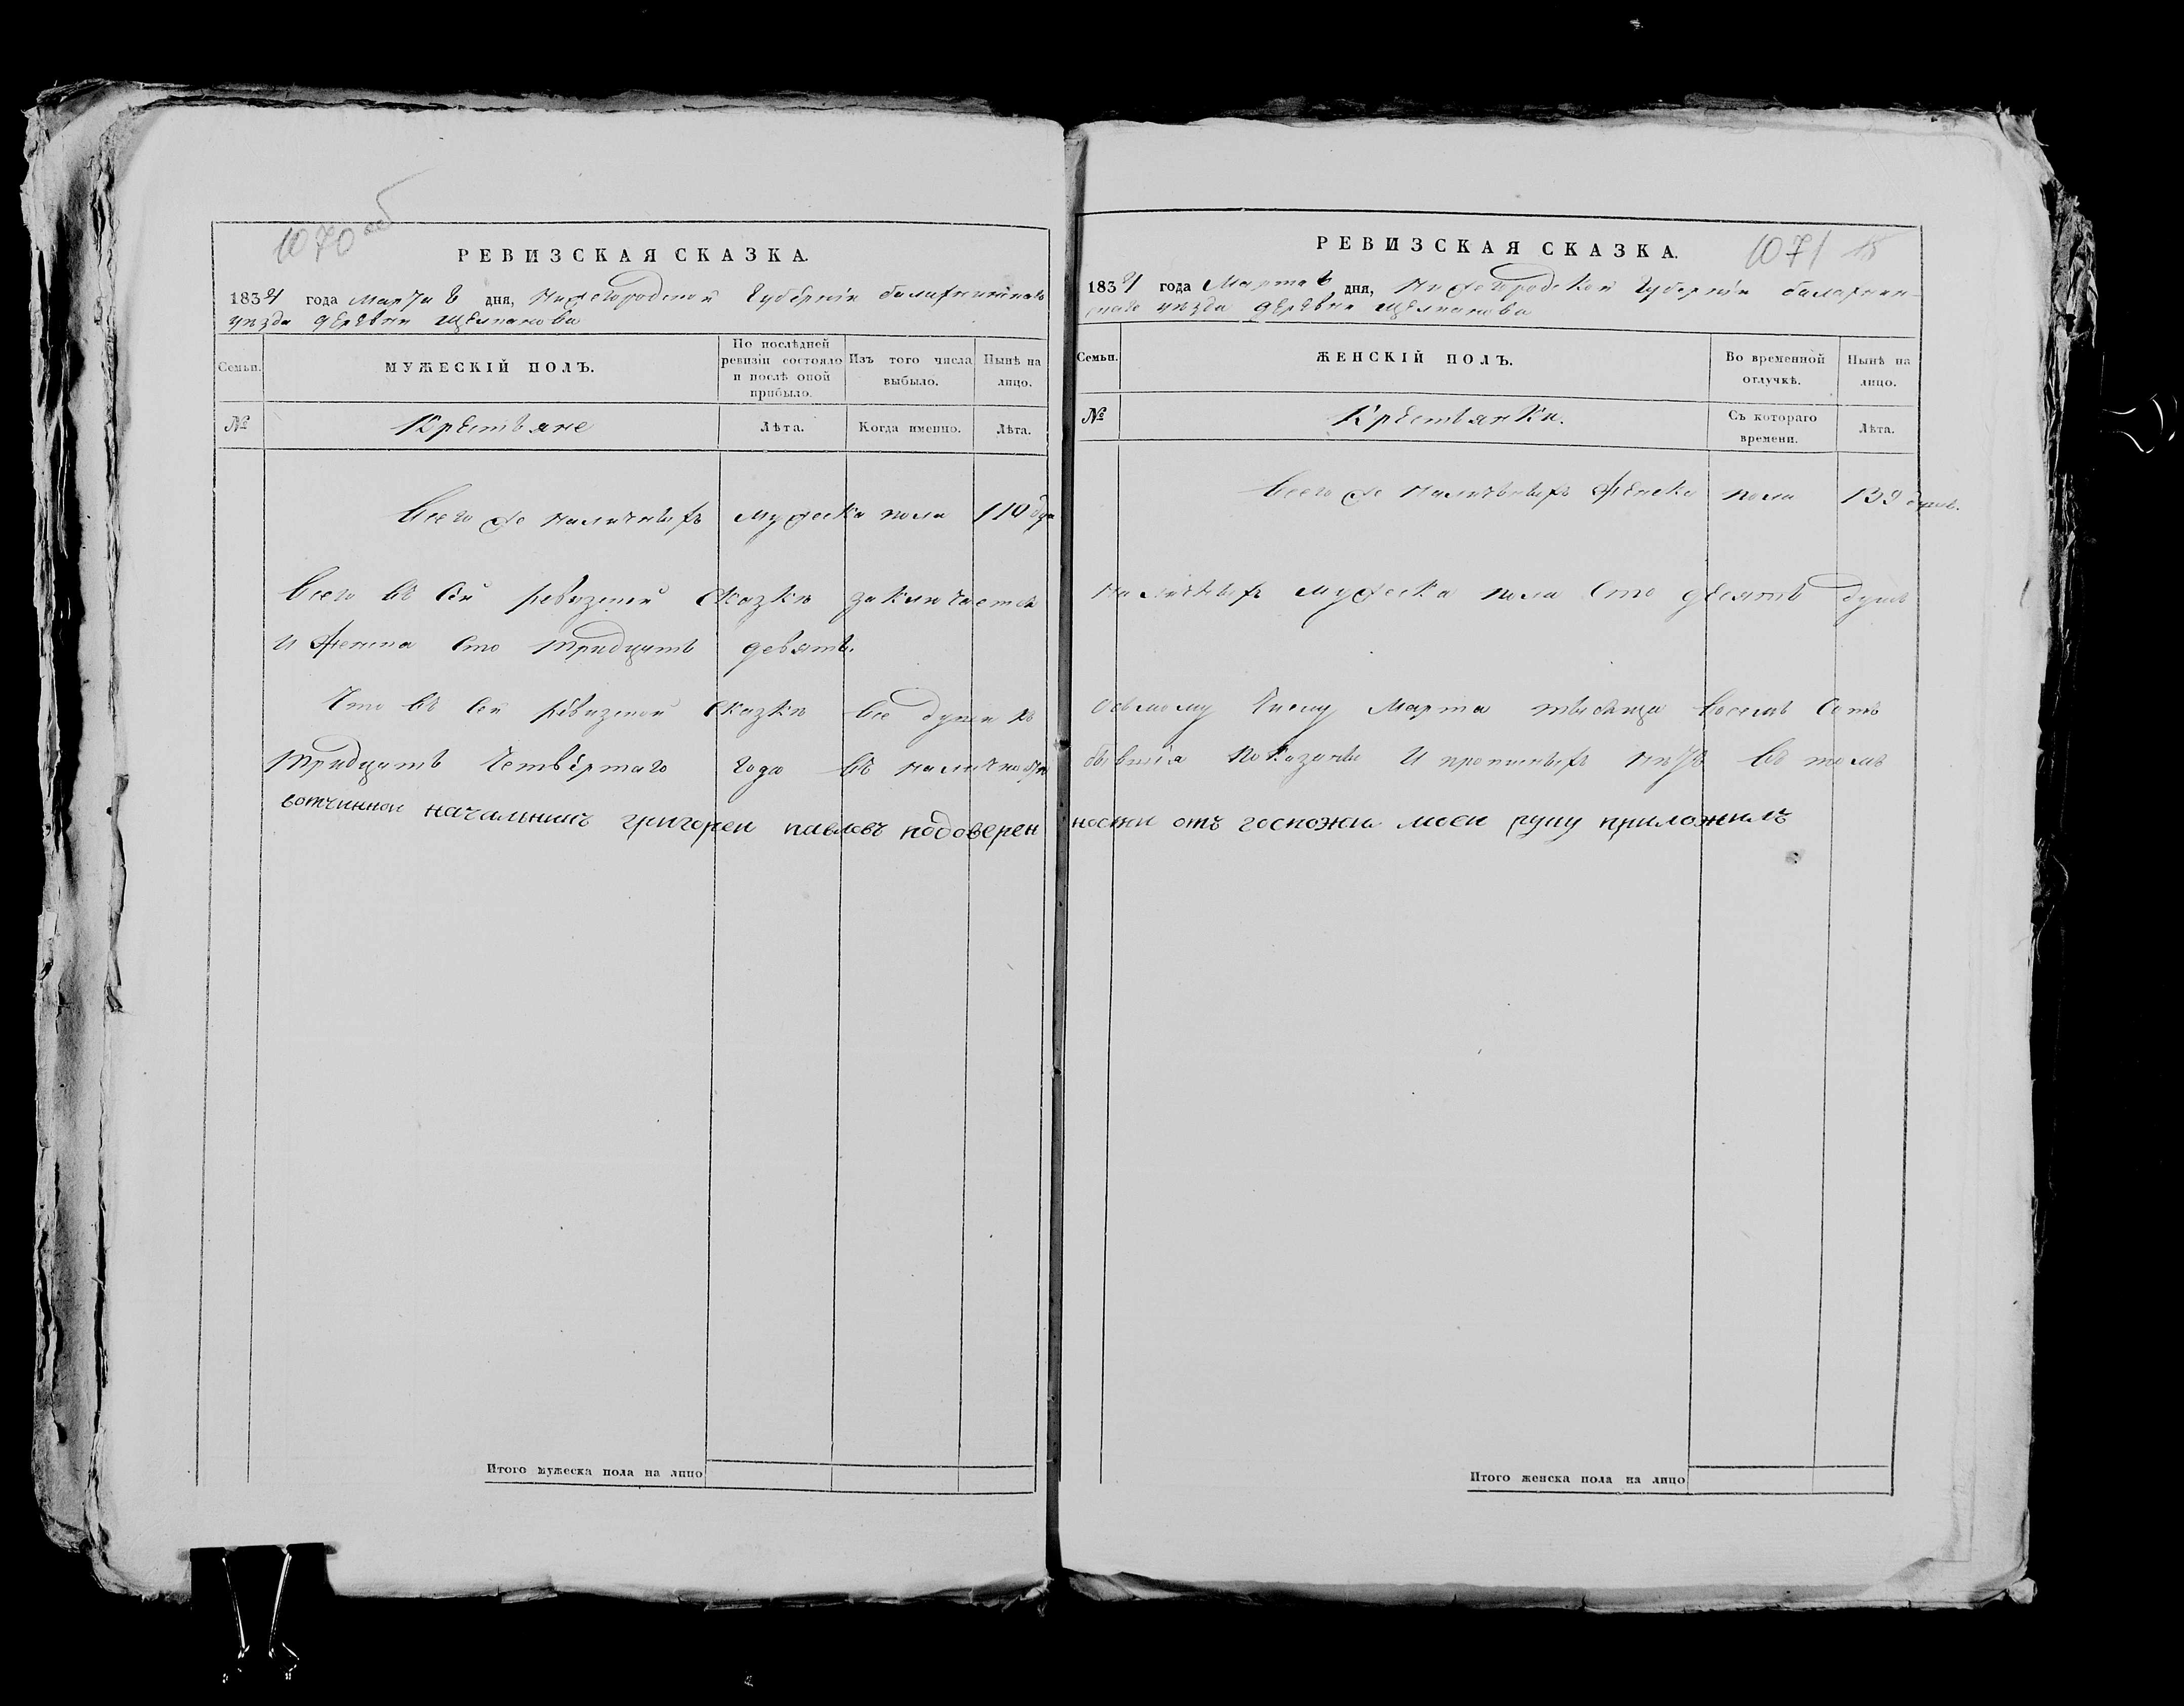 1070 об
РЕВИЗСКАЯ СКАЗКА.
1834 года Марта 8 дня, Нижегородской Губернiи балахнинскаго
уѣзда деревни Щелпанова
Семьи.
МУЖЕСКIЙ ПОЛЪ.
По послѣдней ревизiи состояло и послѣ оной прибыло.
Изъ того числа выбыло.
Нынѣ на лицо.
№
Крестьяне
Лѣта.
Когда именно.
Лѣта.
Всего же наличныхъ мужеска пола 110 ду
Всего въ сей ревизской сказкѣ заключается
и женска сто тридцать девять.
Что въ сей ревизской сказкѣ все души къ
тридцать четвертаго года въ
вотчинной началникъ григореи павловъ подоверен
Итого мужеска пола на лицо
1071 18
РЕВИЗСКАЯ СКАЗКА.
1834 года Марта 8 дня, Нижегородской Губернiи балахнин-
скаго уѣзда деревни Щелпанова
Семьи.
ЖЕНСКIЙ ПОЛЪ.
Во временной отлучкѣ.
Нынѣ на лицо.
№
Крестьянки.
Съ котораго времени.
Лѣта.
Всего же наличныхъ женска пола 139 душъ.
наличныхъ мужеска пола сто десять душъ
осьмому числу Марта тысяща восемь сотъ
бывшiя показаны и прописныхъ нѣтъ въ томъ
ности отъ госпожи моеи руку приложилъ
Итого женска пола на лицо